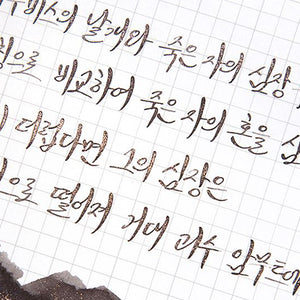 누비스의 날개와 죽은 자의 심장
으로 비교하여 죽은 자의 혼을 심
더럽다면 그의 심장은
으로 떨어져 거대 괴수 암무트에